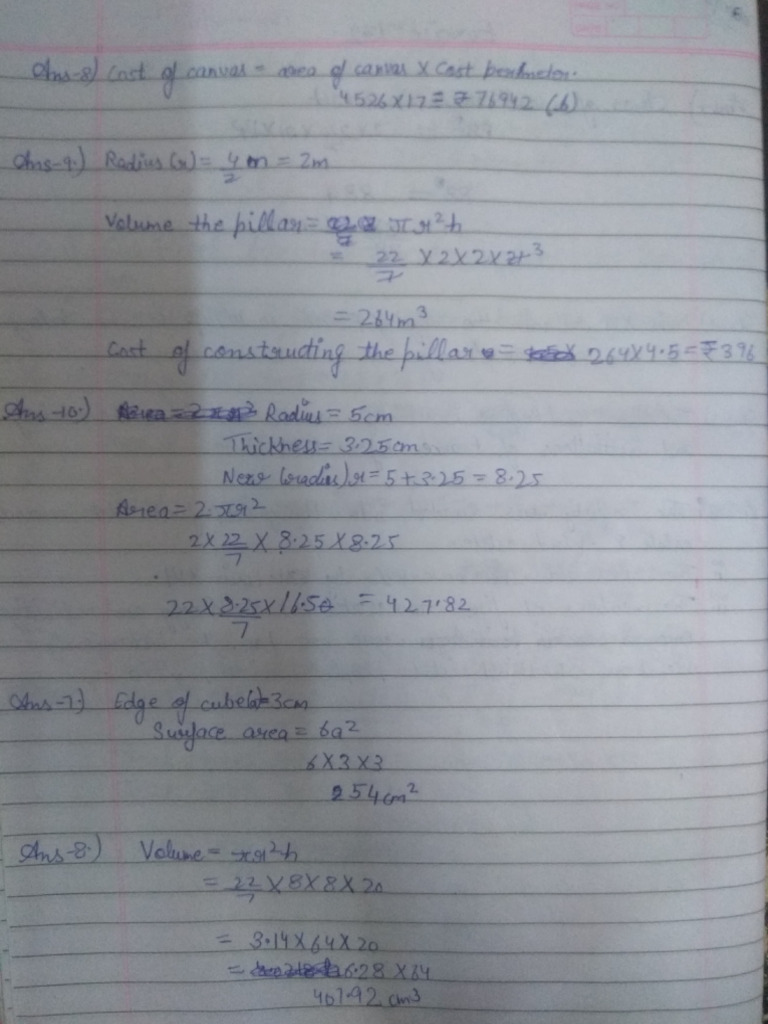 Ans-8) Cost of canvas = area of canvas × Cost
4526×17 = ₹ 76942 (b)
Ans-9.) Radius (r) = 4/2 m = 2m
Volume the pillar = πr²h
= 22/7 ×2×2×21³
= 264m³
Cost of constructing the pillar = 264×4.5 = ₹ 396
Ans-10.) Radius = 5cm
Thickness = 3.25cm
New (radius) r = 5+3.25 = 8.25
Area = 2πr²
2×22/7 × 8.25×8.25
22×8.25×16.50/7 = 427.82
Ans-7.) Edge of cube(a)=3cm
Surface area = 6a²
6×3×3
254cm²
Ans-8.) Volume = πr²h
= 22/7 ×8×8×20
= 3.14×64×20
= 6.28 ×64
401.92 cm³